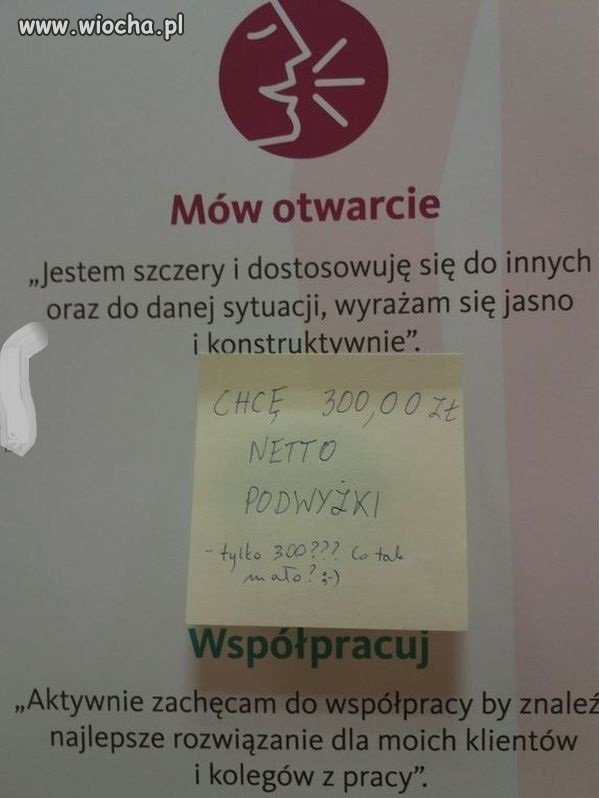 www.wiocha.pl
Mów otwarcie
„Jestem szczery i dostosowuję się do innych
oraz do danej sytuacji, wyrażam się jasno
i konstruktywnie”.
CHCĘ 300,00 ZŁ
NETTO
PODWYŻKI
- tylko 300??? Co tak
mało? ;-)
Współpracuj
„Aktywnie zachęcam do współpracy by znaleź
najlepsze rozwiązanie dla moich klientów
i kolegów z pracy”.